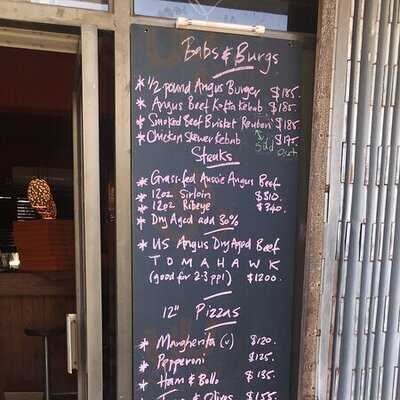 Babs & Burgs
* 1/2 pound Angus Burger $185.
* Angus Beef Kofta Kebab $185.
* Smoked Beef Brisket Reuben $185
* Chicken Skewer Kebab $175.
Sold Out
Steaks
* Grass-fed Aussie Angus Beef
* 12oz Sirloin $310.
* 12oz Ribeye $340.
* Dry Aged add 30%
* US Angus Dry Aged Beef
TOMAHAWK
(good for 2-3 ppl) $1200.
12" Pizzas
* Margherita (v) $120.
* Pepperoni $125.
* Ham & $135
& Olives $155